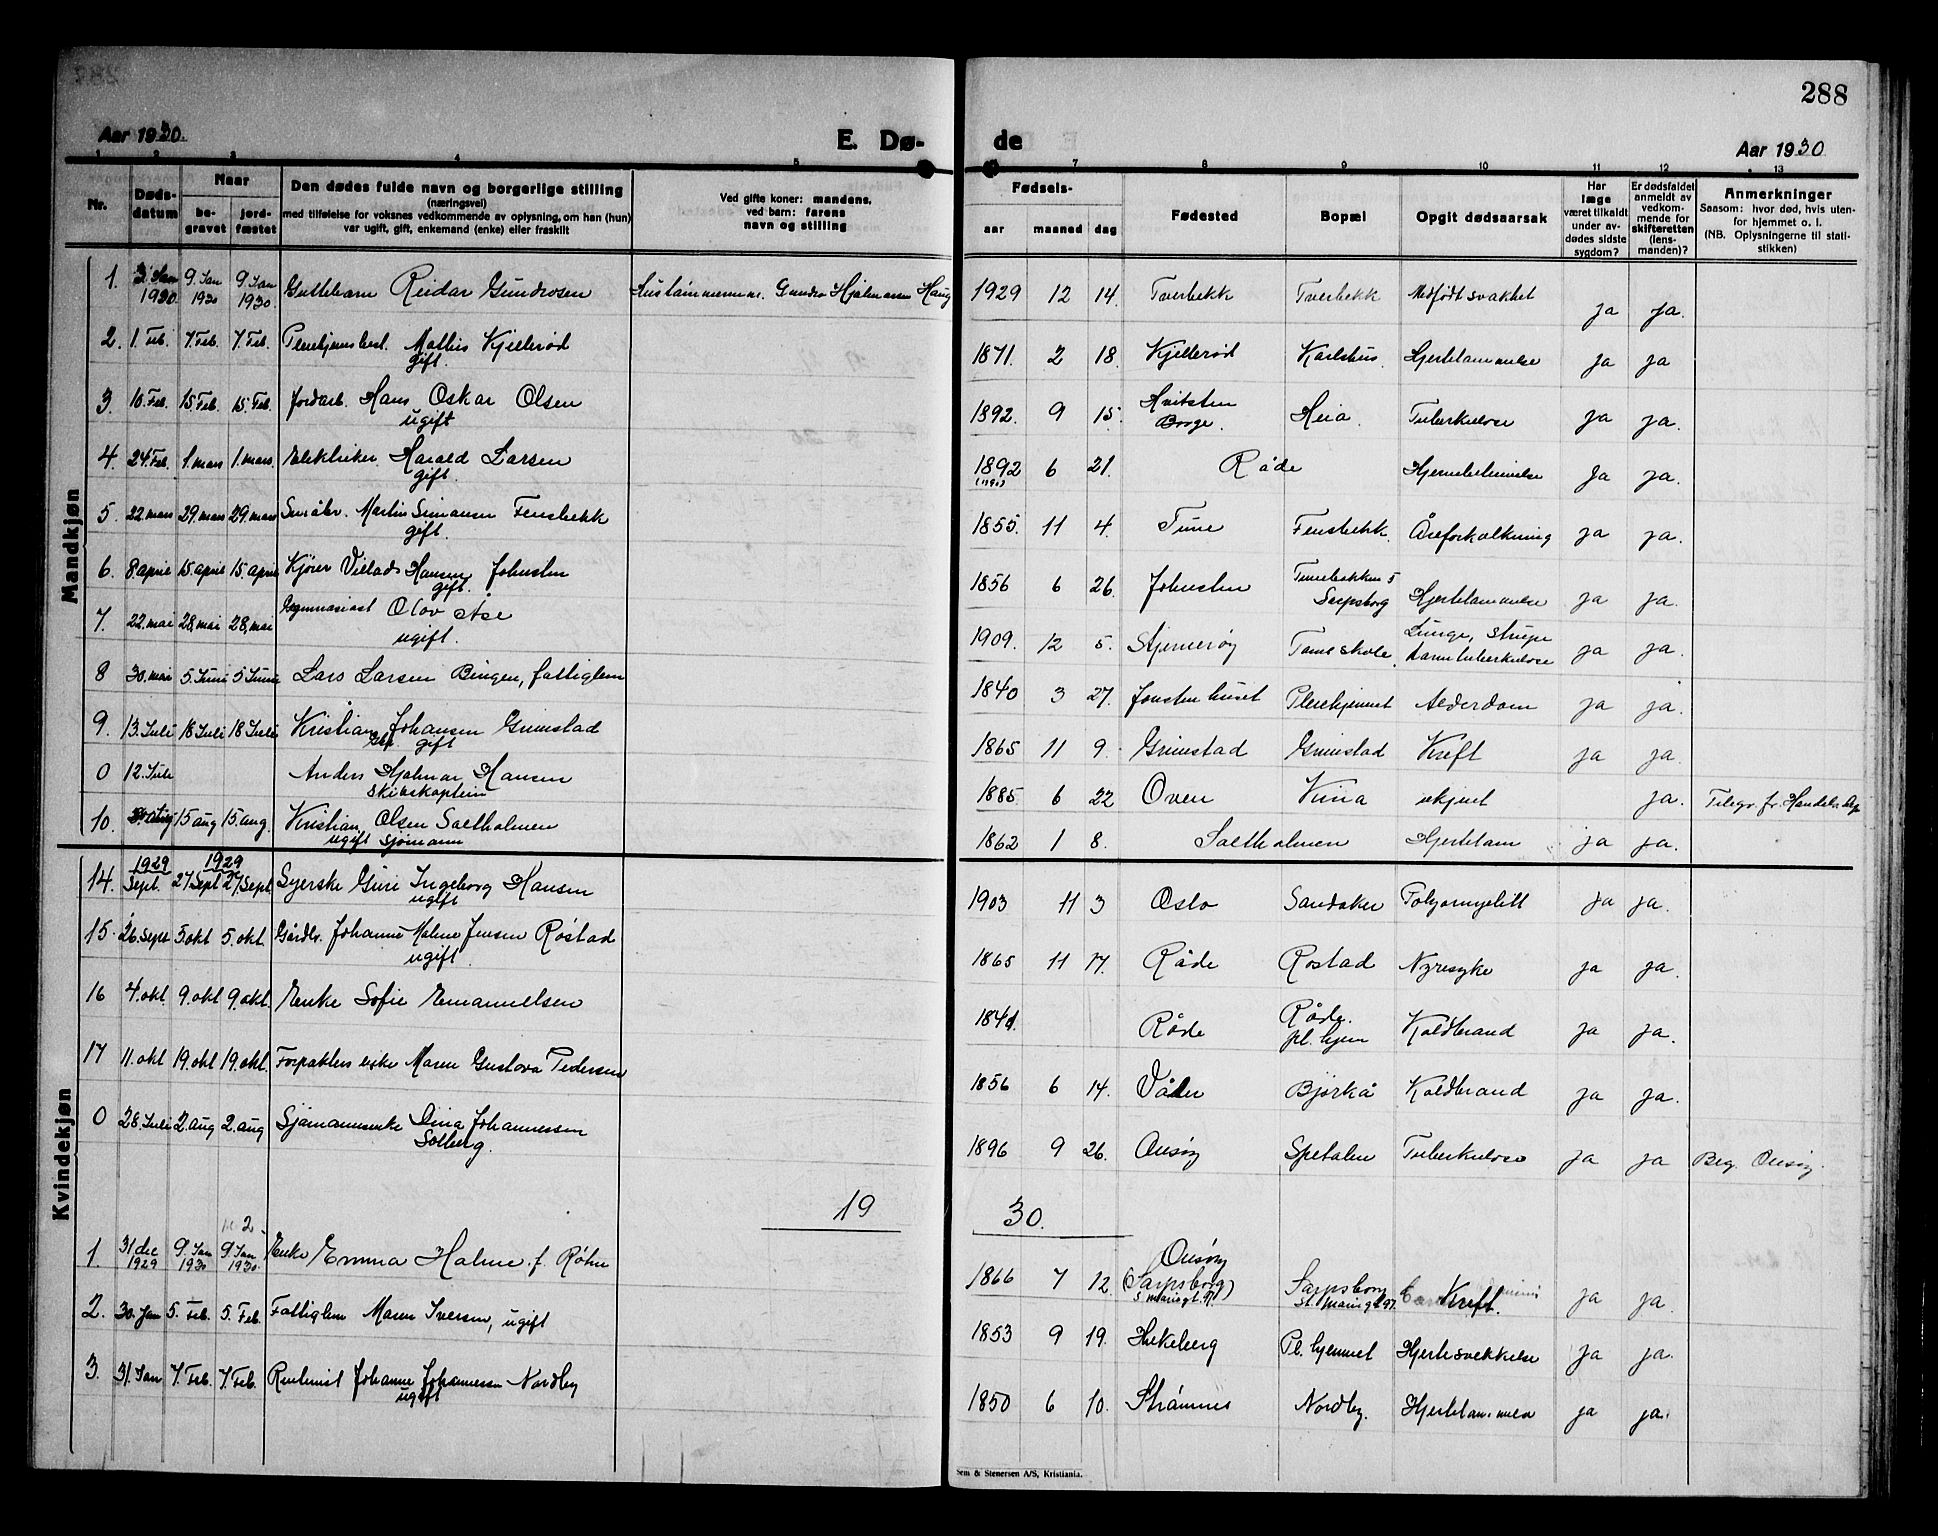 288
Aar 1930.
E. Dø-
de
Aar 1930
1 2 3 4 5 7 8 9 10 11 12 13
Nr.
Døds-
datum
Naar
be-
gravet
jord-
fæstet
Den dødes fulde navn og borgerlige stilling
(næringsvei)
med tilføielse for voksnes vedkommende av oplysning, om han (hun)
var ugift, gift, enkemand (enke) eller fraskilt
Ved gifte koner: mandens,
ved barn: farens
navn og stilling
Fødsels-
aar
maaned
dag
Fødested
Bopæl
Opgit dødsaarsak
Har
læge
været tilkaldt
under av-
dødes sidste
sygdom?
Er dødsfaldet
anmeldt av
vedkom-
mende for
skifteretten
(lens-
manden)?
Anmerkninger
Saasom: hvor død, hvis uten-
for hjemmet o. l.
(NB. Oplysningerne til stati-
stikken)
Mandkjøn
1. 3 Jan 1930. 9 Jan 1930 9 Jan 1930. Guttebarn Reidar Gundrosen Hjalmarsen Haug 1929 12 14. Tverbekk Tverbekk Medfødt svakhet ja ja.
2. 1. Feb. 7. Feb. 7. Feb. Mathis Kjellerød
gift. 1871. 2 18. Kjellerød Karlshus. Hjertelammelse ja ja
3. 10. Feb. 15. Feb. 15. Feb. Jordarb. Hans Oskar Olsen
ugift 1892. 9 15. Hvitsten
Borge. Heia. Tuberkulose ja ja.
4. 24. Feb. 1. mars 1. mars Elektriker Harald Larsen
gift. 1892 6 21. Råde ja ja.
5. 22 mars 29. mars 29. mars Småbr. Martin Simonsen Fensbekk
gift. 1855. 11 4. Tune Fensbekk. Åreforkalkning ja ja.
6. 8. april 15. april 15. april Hansen, Johnsten
gift. 1856 6 26. Johnsten Sarpsborg Hjertelammelse ja ja.
7. 22. mai 28, mai 28, mai Gymnasiast Olov Åse
ugift. 1909. 12 5. Stjernerøy Tomb skole. Lunge, strupe
tarmtuberkulose ja ja.
8 30. mai 5 Juni 5 Juni Lars Larsen Bingen, fattiglem 1840 3 27. Pleiehjemmet Alderdom ja ja.
9. 13. Juli 18 Juli 18 Juli Kristian Johansen Grimstad
gift 1865 11 9. Grimstad Grimstad Kreft ja ja.
0 12. Juli Anders Hjalmar Hansen
skibskaptein 1885 6 22 Oven Kina ukjent ja. Telegr. fr. Handels dep
10. 15 aug 15. aug. Kristian Olsen Saltholmen
ugift sjømann 1862 1 8. Saltholmen Hjertelam ja ja.
Kvindekjøn
1929 1929
14. Sept. 27 Sept 27 Sept. Syerske Guri Ingeborg Hansen
ugift 1903 11 3 Oslo Sandaker ja ja.
15. 26. Sept 5 okt 5. okt. Johanne Malene Jensen Rostad
ugift 1865 11 17. Råde Rostad Nyresyke ja ja.
16 4. okt 9. okt 9. okt. Enke Sofie Emanuelsen 1841. Råde Råde.
pl. hjem Koldbrand ja ja.
17 11. okt 19. okt 19. okt. Forpakters enke Maren Gustava Pedersen 1856 6 14. Våler Bjørkå Koldbrand ja ja.
0 28. Juli 2. Aug 2. aug Sjømannsenke Dina Johannessen
Solberg. 1896 9 26. Onsøy Spetalen Tuberkulose ja ja Beg. Onsøy.
19 30.
2
1. 31 dec 1929 9. Jan 1930 9. Jan 1930. Enke Emma Halme f. Røhn 1866 7 12 Onsøy
(Sarpsborg)
Sarpsborg
St. Mariegt 97. Kreft. ja ja.
2. 30. Jan 5. Feb. 5. Feb. Fattiglem Maren Iversen, ugift 1853 9 19. Hukeberg Pl. hjemmet Hjertesvekkelse ja ja.
3. 31. Jan 7. Feb. 7. Feb. Rentenist Johanne Johannessen Nordby
ugift 1850 6 10. Strømnes Nordby. Hjertelammelse ja ja.
Sem & Stenersen A/S, Kristiania.